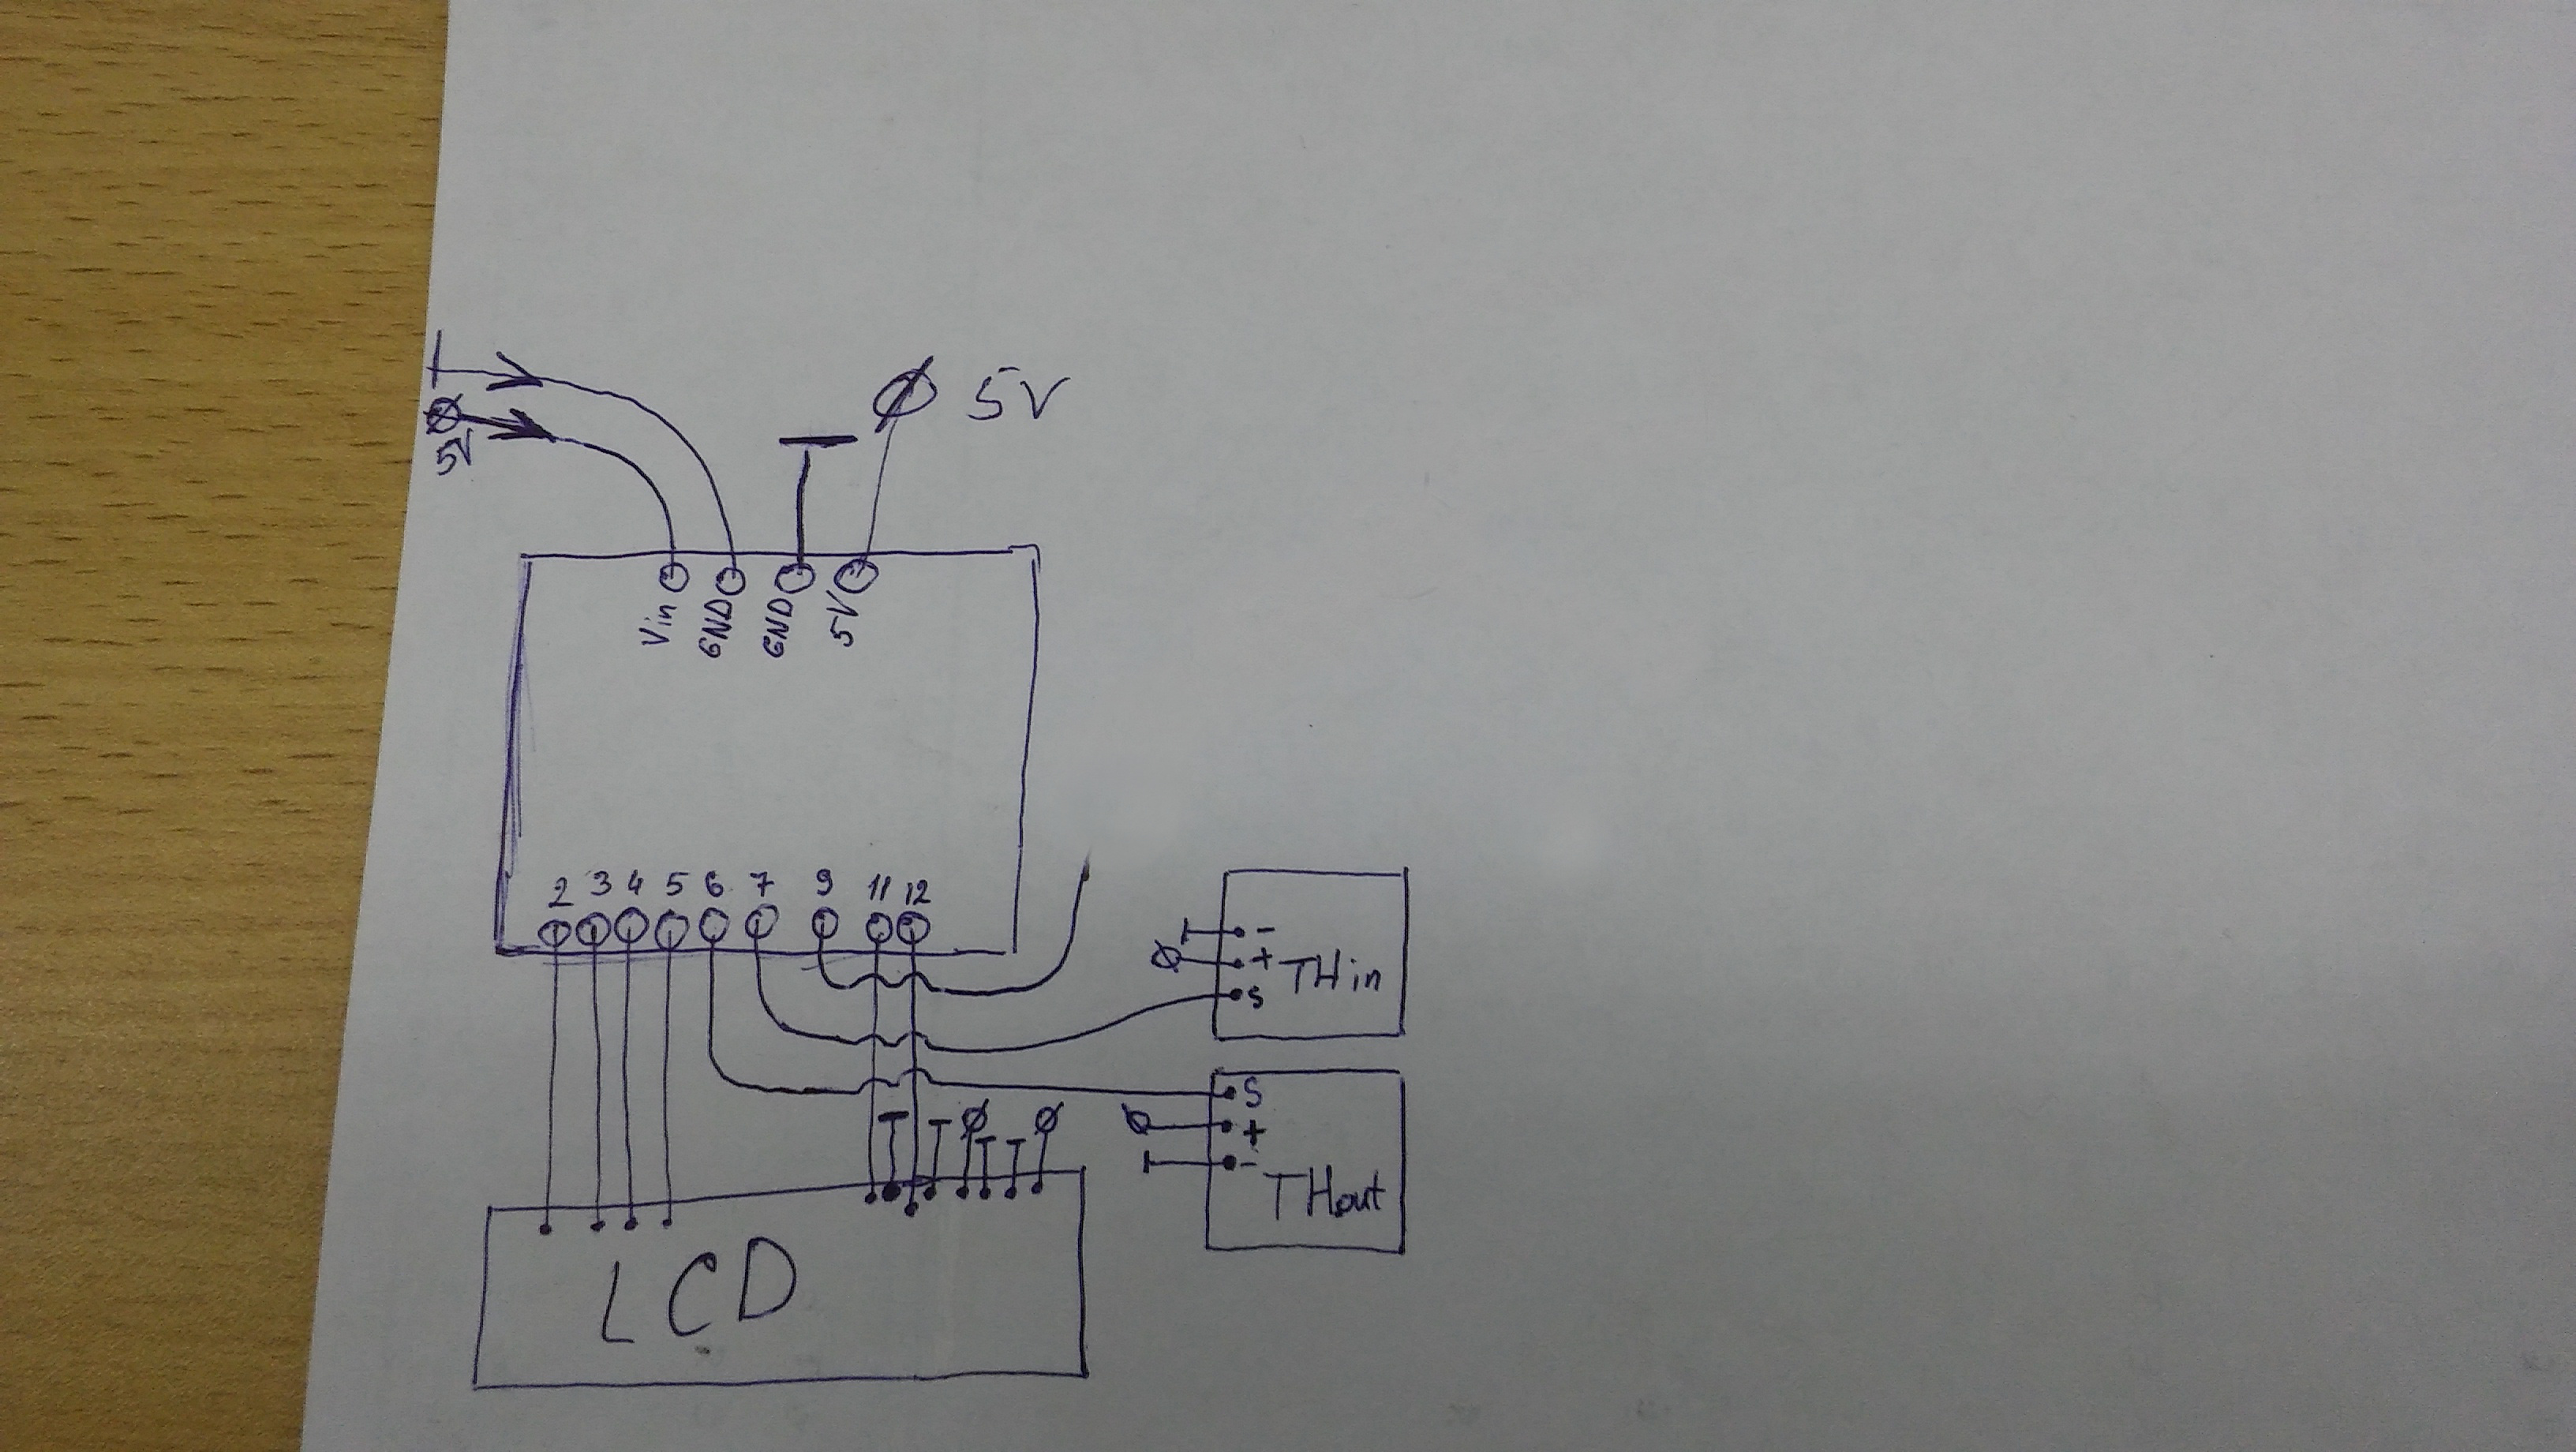 5V
5V
Vin GND GND 5V
2 3 4 5 6 7 9 11 12
-
+ THin
S
S
+
-
THout
LCD